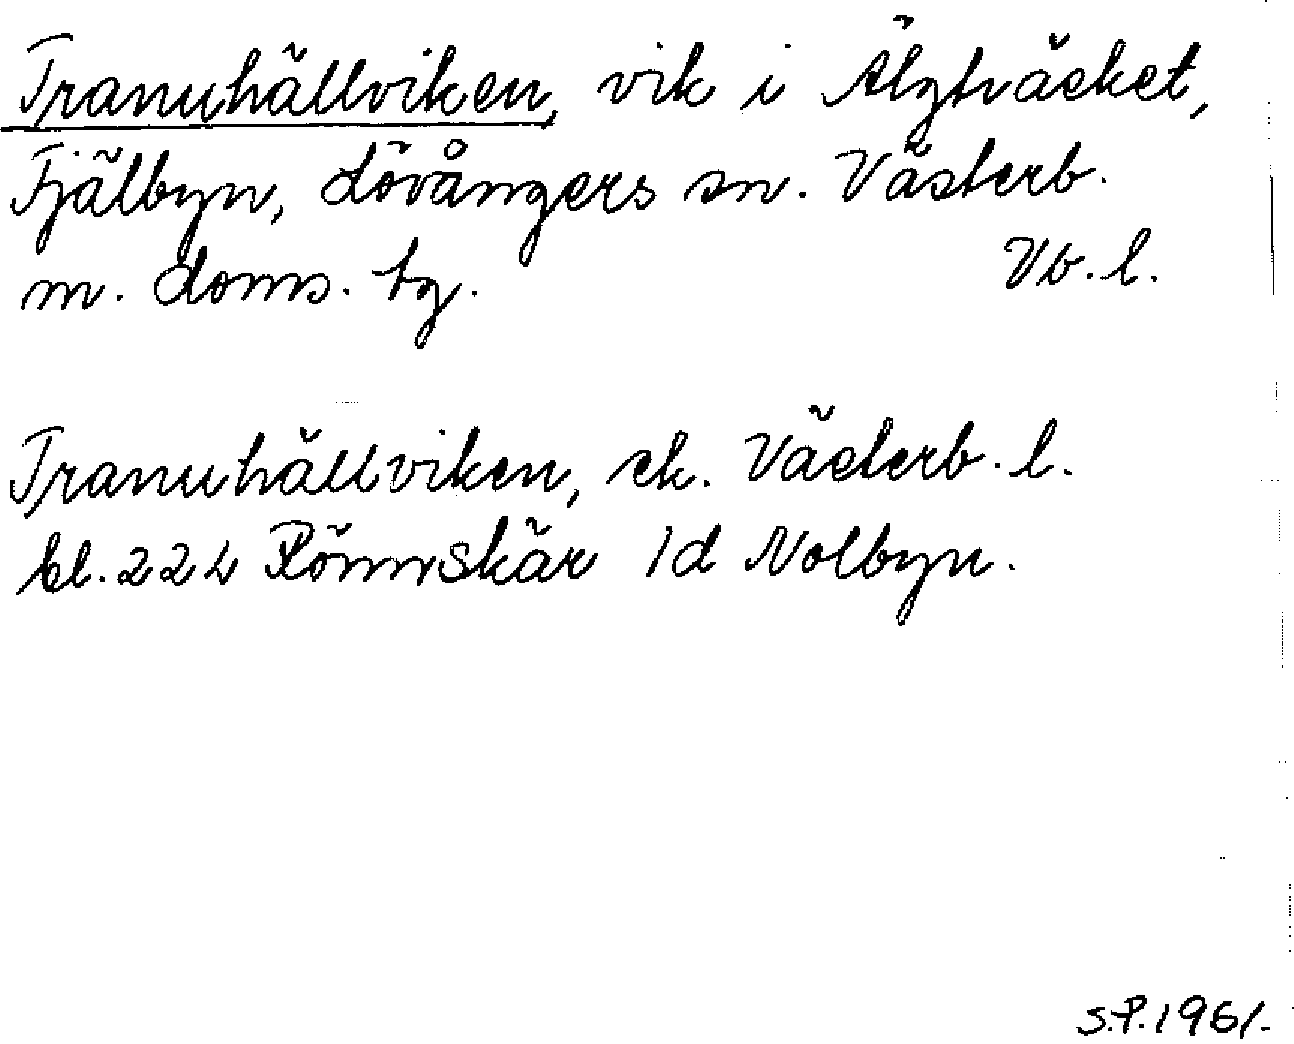 Tranuhällviken, vik i Älgträsket,
Fjälbyn, Lövångers sn. Västerb.
m. doms. tg. Vb. l.
Tranuhällviken, ek. Västerb. l.
bl. 22 L Rönnskär 1d Nolbyn.
S.P. 1961.